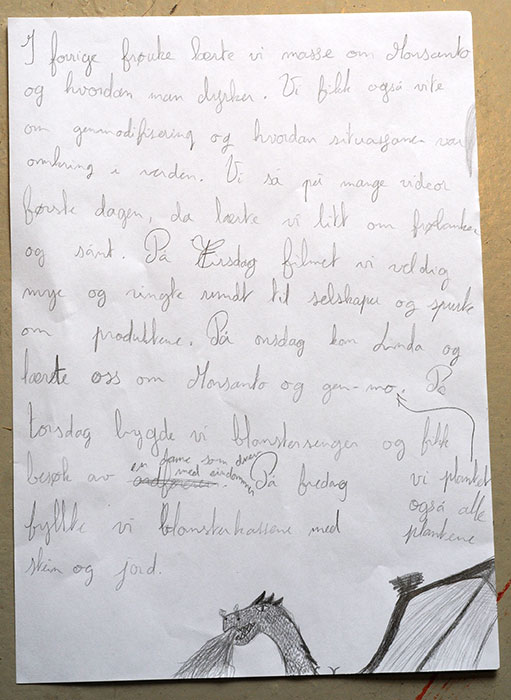 I forrige frøuke lærte vi masse om Monsanto
og hvordan man dyrker. Vi fikk også vite
om genmodifisering og hvordan situasjonen var
omkring i verden. Vi så på mange videor
første dagen, da lærte vi litt om frøbanker
og sånt. På Tirsdag filmet vi veldig
mye og ringte rundt til selskaper og spurte
om produktene. På onsdag kom Linda og
lærte oss om Monsanto og gen-mo. På
torsdag bygde vi blomstersenger og fikk
besøk av en dame som drev
med eiendommer. På fredag
vi planket
også alle
plankene
fyllte vi blomsterkassene med
stein og jord.